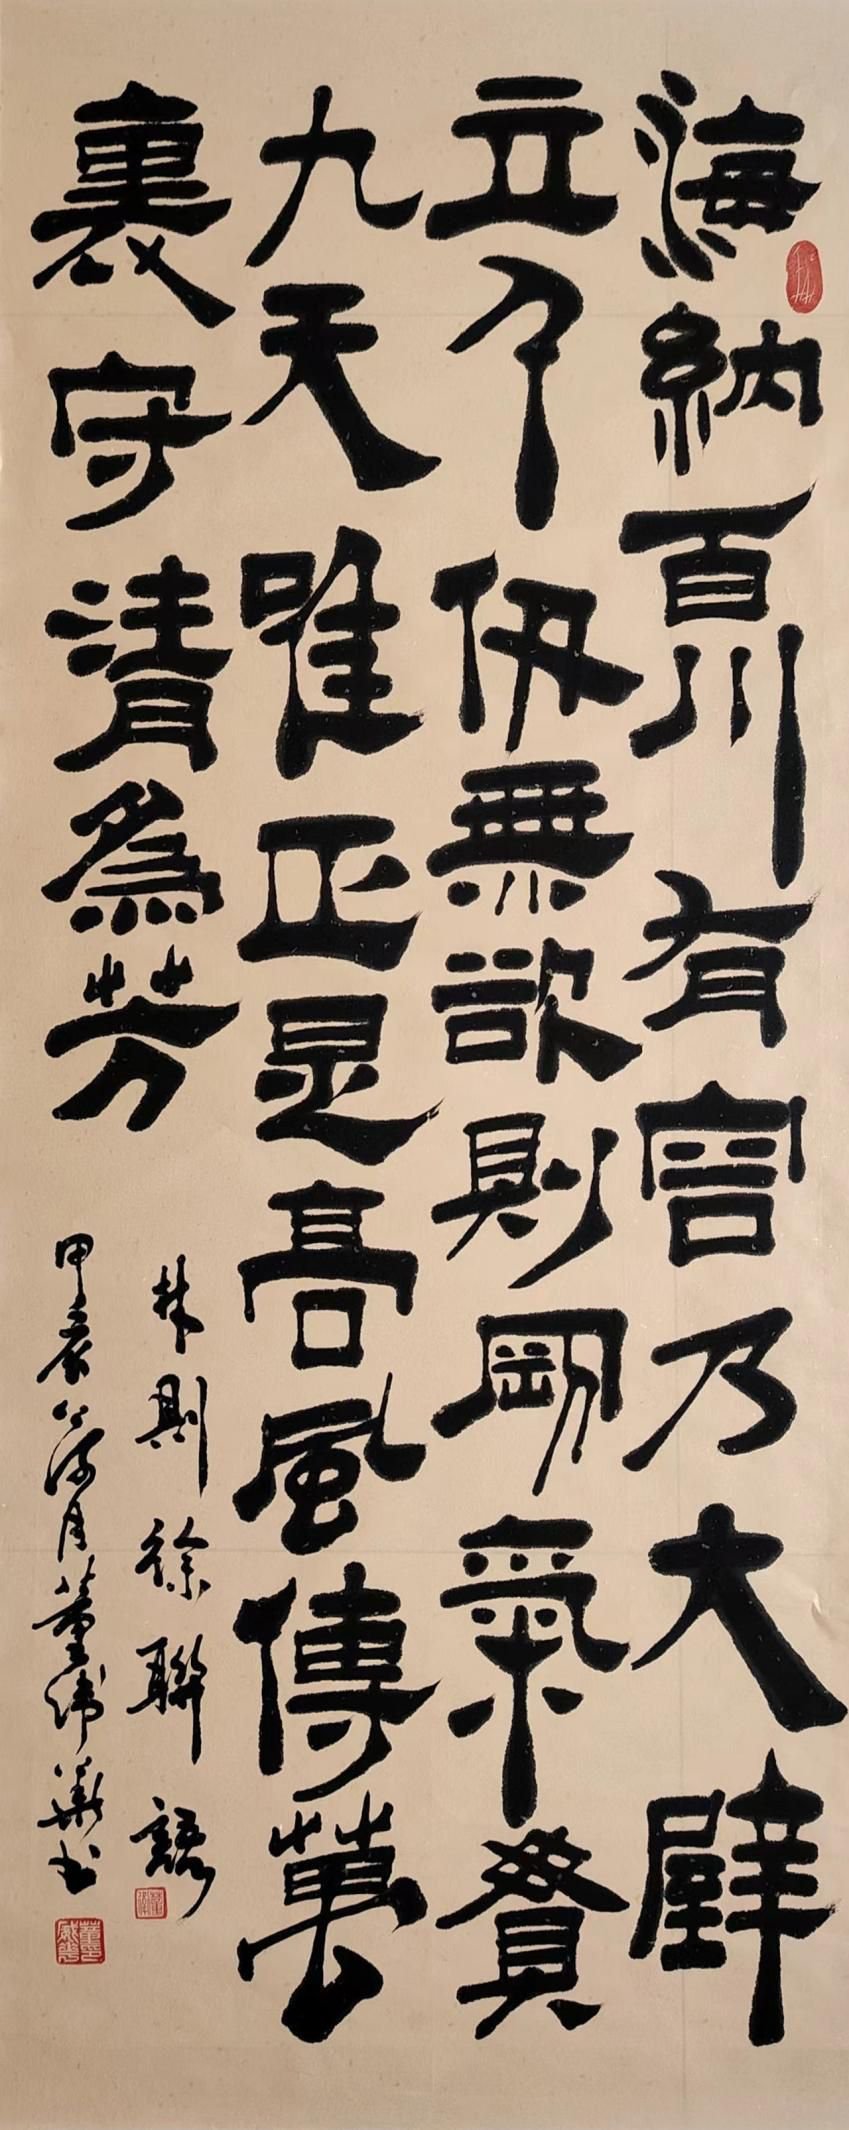 海納百川有容乃大壁
立千仞無欲則剛氣貫
九天唯正是高風傳萬
裏守清爲芳
林則徐聯語
甲辰荷月董偉華書